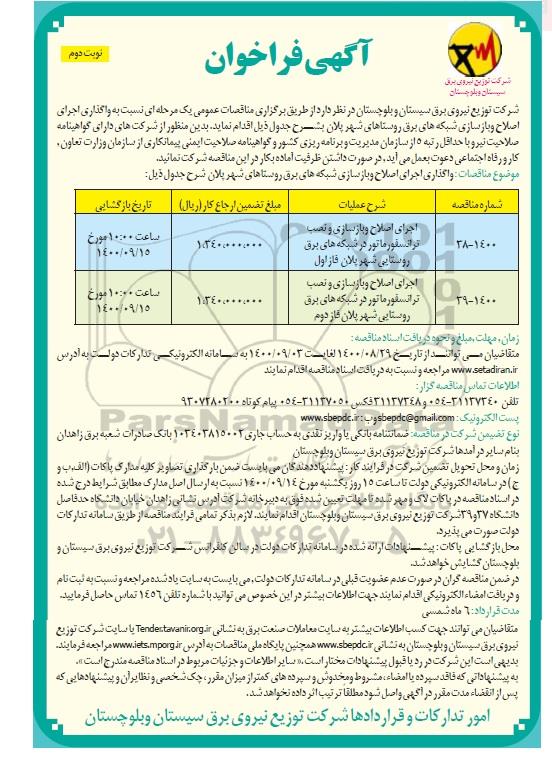 آگهی فراخوان
نوبت دوم
شرکت توزیع نیروی برق
سیستان وبلوچستان
شرکت توزیع نیروی برق سیستان و بلوچستان در نظر دارد از طریق برگزاری مناقصات عمومی یک مرحله ای نسبت به واگذاری اجرای
اصلاح وبازسازی شبکه های برق روستاهای شهر پلان بشرح جدول ذیل اقدام نماید. بدین منظور از شرکت های دارای گواهینامه
صلاحیت نیرو با حداقل رتبه ۵ از سازمان مدیریت و برنامه ریزی کشور و گواهینامه صلاحیت ایمنی پیمانکاری از سازمان وزارت تعاون ،
کار و رفاه اجتماعی دعوت بعمل می آید، در صورت داشتن ظرفیت آماده بکار در این مناقصه شرکت نمائید.
موضوع مناقصات : واگذاری اجرای اصلاح وبازسازی شبکه های برق روستاهای شهر پلان شرح جدول ذیل:
شماره مناقصه	شرح عملیات	مبلغ تضمین ارجاع کار (ریال)	تاریخ بازگشایی
۱۴۰۰-۳۸	اجرای اصلاح وبازسازی و نصب	۱.۳۴۰.۰۰۰.۰۰۰	ساعت ۱۰:۰۰ مورخ
ترانسفورماتور در شبکه های برق	۱۴۰۰/۰۹/۱۵
روستایی شهر پلان فاز اول
۱۴۰۰-۳۹	اجرای اصلاح وبازسازی و نصب	۱.۳۴۰.۰۰۰.۰۰۰	ساعت ۱۰:۰۰ مورخ
ترانسفورماتور در شبکه های برق	۱۴۰۰/۰۹/۱۵
روستایی شهر پلان فاز دوم
زمان، مهلت ،مبلغ و نحوه دریافت اسناد مناقصه:
متقاضیان می توانند از تاریخ ۱۴۰۰/۰۸/۲۹ لغایت ۱۴۰۰/۰۹/۰۳ به سامانه الکترونیکی تدارکات دولت به آدرس
www.setadiran.ir مراجعه و نسبت به دریافت اسناد مناقصه اقدام نمایند
اطلاعات تماس مناقصه گزار:
تلفن ۳۱۱۳۷۳۴۰-۰۵۴ و ۳۱۱۳۷۳۴۸ فکس ۳۱۱۳۷۰۵۰-۰۵۴ پیام کوتاه ۹۳۰۷۲۸۰۲۰۰
پست الکترونیک : sbepdc@gmail.com وب : www.sbepdc.ir
نوع تضمین شرکت در مناقصه: ضمانتنامه بانکی یا واریز نقدی به حساب جاری ۰۱۰۳۴۰۳۸۱۵۰۰۲ بانک صادرات شعبه برق زاهدان
بنام سایر درآمدها شرکت توزیع نیروی برق سیستان وبلوچستان
زمان و محل تحویل تضمین شرکت در فرایند کار : پیشنهاددهندگان می بایست ضمن بارگذاری تصاویر کلیه مدارک پاکات (الف،ب و
ج) در سامانه الکترونیکی دولت تا ساعت ۱۵ روز یکشنبه مورخ ۱۴۰۰/۰۹/۱۴ نسبت به ارسال اصل مدارک مطابق شرایط درج شده
در اسناد مناقصه در پاکات لاک و مهر شده تا مهلت تعیین شده فوق به دبیرخانه شرکت آدرس نشانی زاهدان خیابان دانشگاه حدفاصل
دانشگاه ۳۷ و ۳۹ شرکت توزیع نیروی برق سیستان وبلوچستان اقدام نمایند. لازم بذکر تمامی فرایند مناقصه از طریق سامانه تدارکات
دولت صورت می پذیرد.
محل بازگشایی پاکات : پیشنهادات ارائه شده در سامانه تدارکات دولت در سالن کنفرانس شرکت توزیع نیروی برق سیستان و
بلوچستان گشایش خواهد شد.
در ضمن مناقصه گران در صورت عدم عضویت قبلی در سامانه تدارکات دولت ، می بایست به سایت یاد شده مراجعه و نسبت به ثبت نام
و دریافت امضاء الکترونیکی اقدام نمایند جهت اطلاعات بیشتر در این خصوص می توانید با شماره تلفن ۱۴۵۶ تماس حاصل فرمایید.
مدت قرارداد : ۶ ماه شمسی
متقاضیان می توانند جهت کسب اطلاعات بیشتر به سایت معاملات صنعت برق به نشانی Tender.tavanir.org.ir یا سایت شرکت توزیع
نیروی برق سیستان و بلوچستان به نشانی www.sbepdc.ir همچنین پایگاه ملی مناقصات به آدرس www.iets.mporg.ir مراجعه فرمایند.
بدیهی است این شرکت در رد یا قبول پیشنهادات مختار است.« سایر اطلاعات و جزئیات مربوط در اسناد مناقصه مندرج است».
به پیشنهاداتی که فاقد سپرده یا امضاء ، مشروط ومخدوش و سپرده های کمتر از میزان مقرر ، چک شخصی و نظایر آن و پیشنهادهایی که
پس از انقضاء مدت مقرر در آگهی واصل شود مطلقا ترتیب اثر داده نخواهد شد.
امور تدارکات و قراردادها شرکت توزیع نیروی برق سیستان وبلوچستان